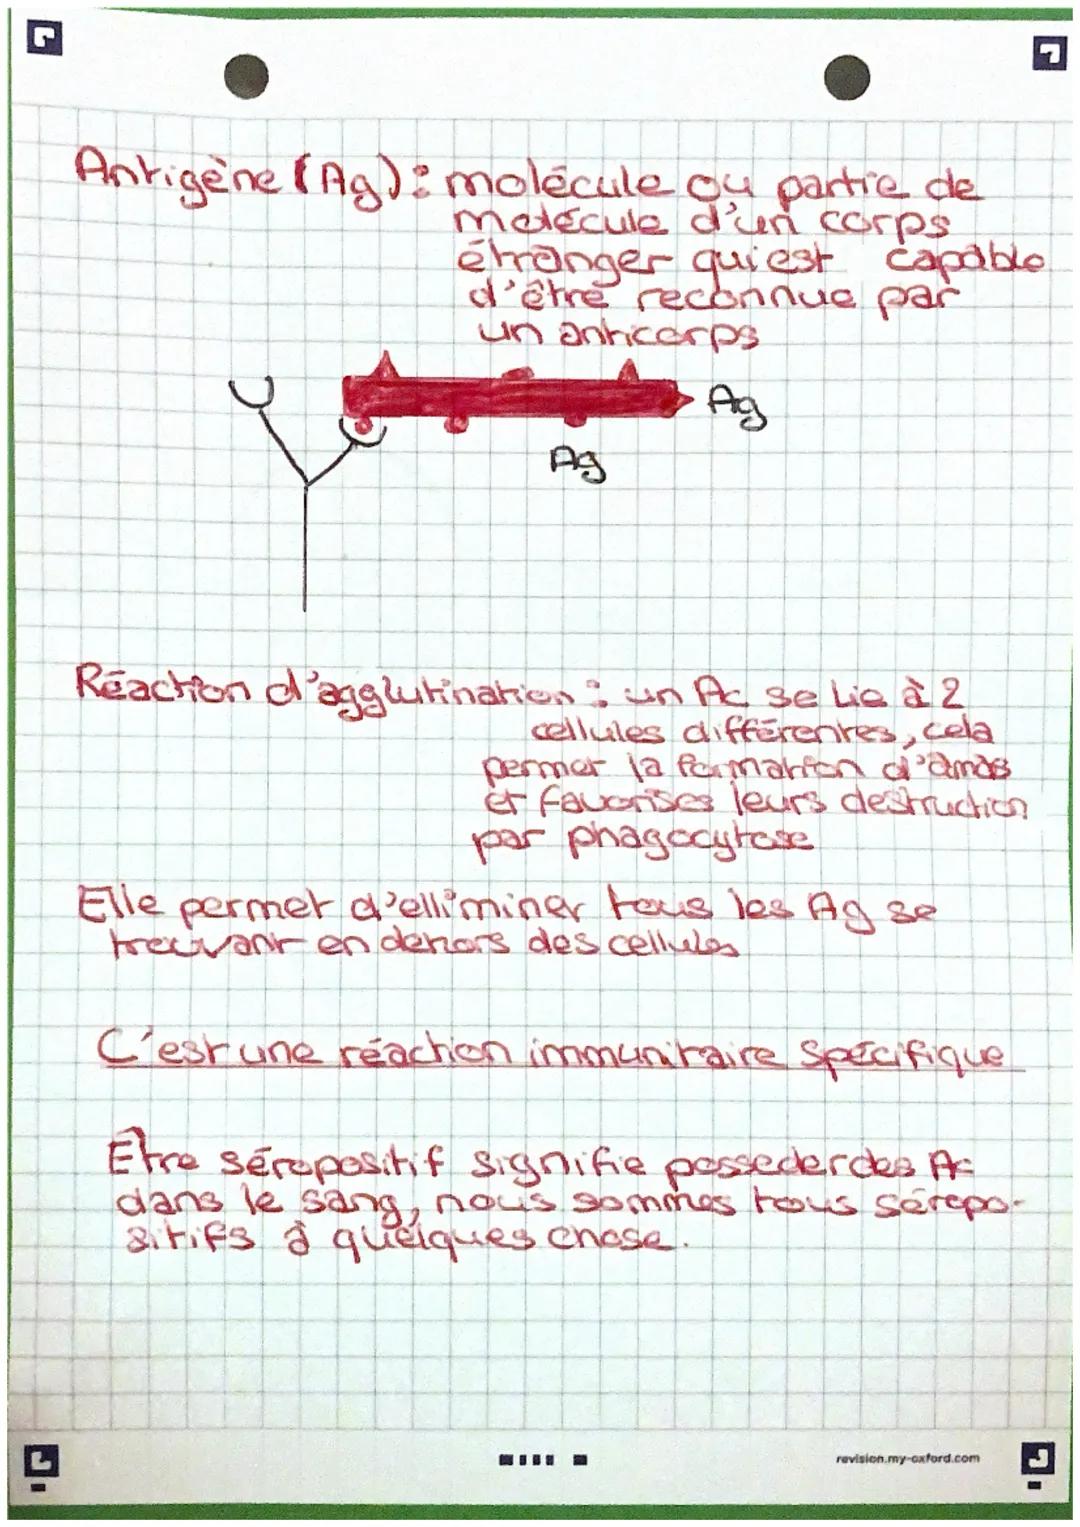 Antigène (Ag) : molécule ou partie de
molécule d'un corps
étranger qui est capable
d'être reconnue par
un anticorps
Ag
Ag
Réaction d'agglutination : un Ac se lie à 2
cellules différentes, cela
permet la formation d'amas
et favorises leurs destruction
par phagocytose
Elle permet d'elliminer tous les Ag se
trouvant en dehors des cellules
C'est une réaction immunitaire spécifique
Être séropositif signifie posseder des Ac
dans le sang, nous sommes tous séropo-
sitifs à quelques chose.
revision.my-oxford.com